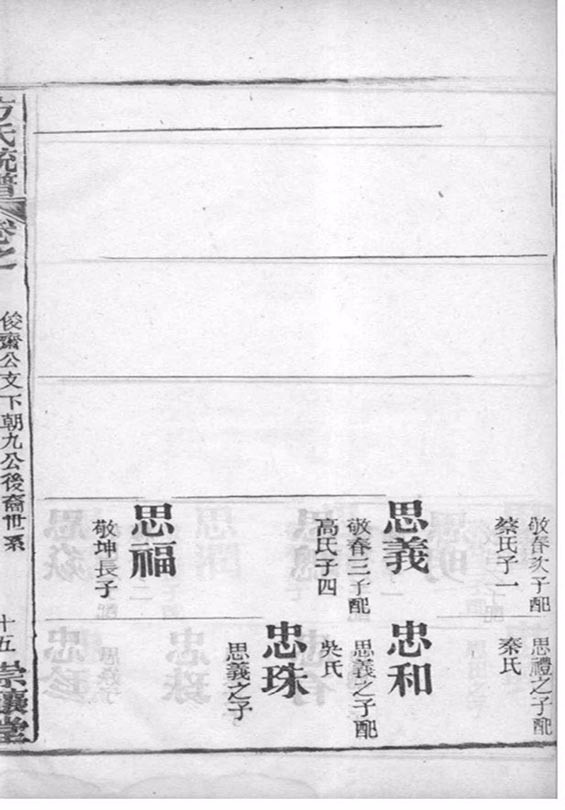 敬春次子配
蔡氏子一
思禮之子配
秦氏
思義
敬春三子配
高氏子四
忠和
思義之子配
吳氏
忠珠
思義之子
思福
敬坤長子
方氏統譜
卷之
俊齋公文下朝九公後裔世系
十五
崇讓堂